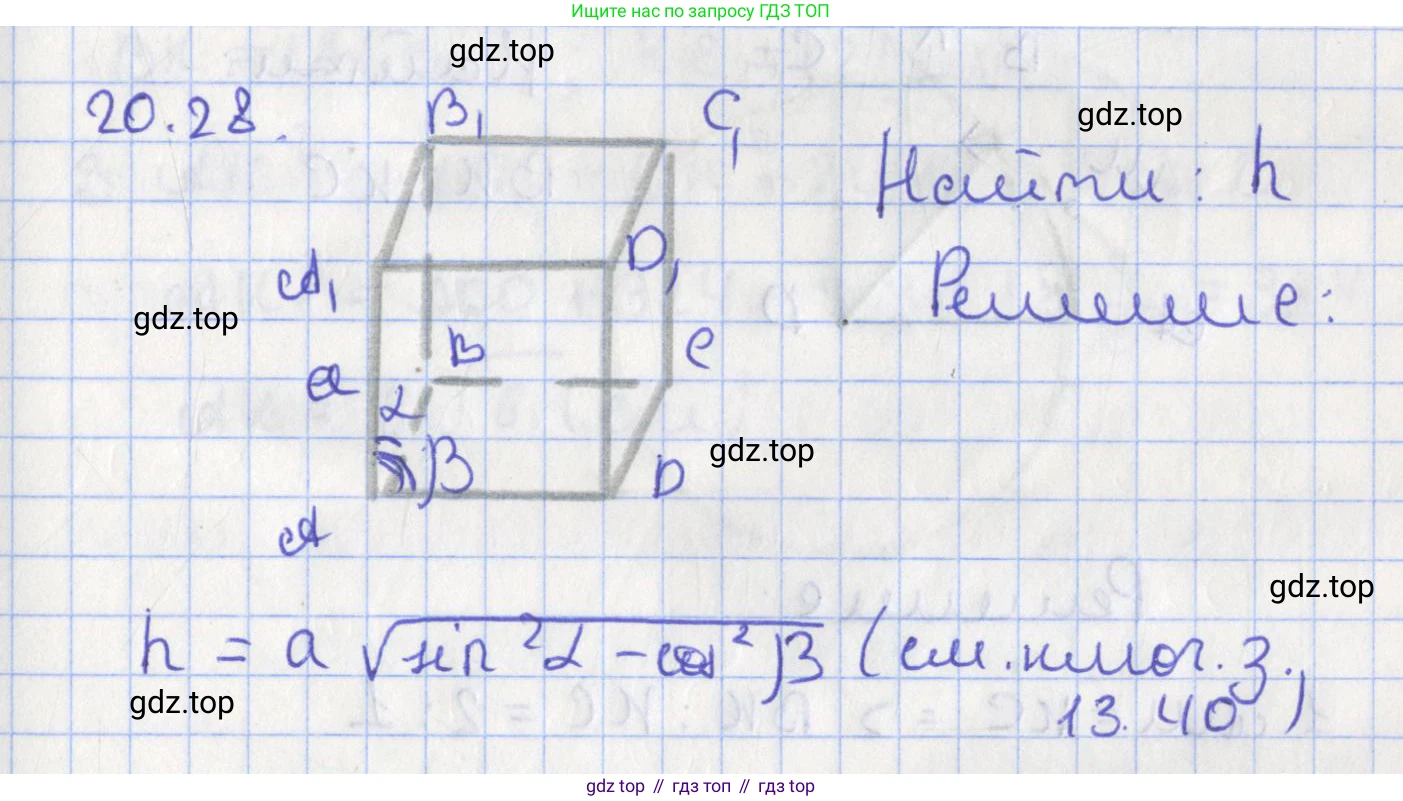 Ищите нас по запросу ГДЗ ТОП
gdz.top
20.28.
B₁
C₁
gdz.top
Найти: h
A₁
D₁
Решение:
gdz.top
B
C
a
α
β
gdz.top
D
A
gdz.top
h = a √sin²α - cos²β (см. ключ. з. 13.40)
gdz.top
gdz top // гдз топ // gdz top